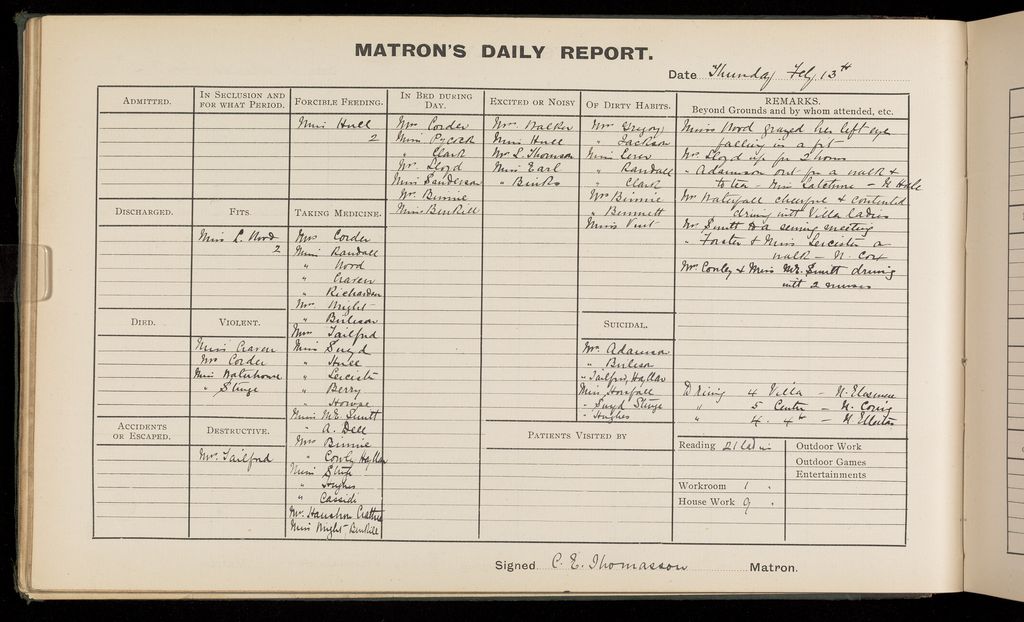 MATRON'S DAILY REPORT.
Date Thursday Feby. 13th
ADMITTED.
IN SECLUSION AND
FOR WHAT PERIOD.
FORCIBLE FEEDING.
Miss Hull
2
IN BED DURING
DAY.
Mrs Corder
Miss Pycock
" Clark
Mr. Lloyd
Miss Sanderson
Mr. Binnie
Miss Binkill
EXCITED OR NOISY
Mrs Walker
Miss Hull
Mr S. Thomson
Miss Earl
" Binks
OF DIRTY HABITS.
Mrs Gregory
" Jackson
Miss
" Randall
" Clark
Mrs Binnie
" Bennett
Miss Vent
REMARKS.
Beyond Grounds and by whom attended, etc.
Miss Wood grazed her left eye
falling in a fit
Mrs Lloyd up for 2 hours
" Adamson out for a walk &
to tea - Miss - N Hale
Mr Waterfall cheerful & contented
driving with Villa ladies
Mr Smitt to a sewing meeting
" Forster & Miss Leicester a
walk - N. Cox
Mrs Conley & Miss M.E. Smitt driving
with 2 nurses
Driving 4 Villa - N.
" 5 Center - N.
" 4. 4th - N
DISCHARGED.
FITS.
Miss L. Wood
2
TAKING MEDICINE.
Mrs Corder
Miss Randall
" Wood
" Craven
" Richardson
Mrs Wright
" Burleson
Mrs Tailford
Miss Lloyd
" Hull
" Leicester
" Berry
" Howse
Miss M.E. Smitt
" A. Dell
Mrs Binnie
" Conly
Miss
" Hughes
" Casside
Mr.
Miss Wright - Binkill
DIED.
VIOLENT.
Miss Craven
Mrs Corder
Miss Waterhouse
" Sturge
ACCIDENTS
OR ESCAPED.
DESTRUCTIVE.
Mrs. Tailford
SUICIDAL.
Mrs. Adamson
" Burleson
" Tailford,
Miss Horsfall
" Lloyd Sturge
" Hughes
PATIENTS VISITED BY
Reading 21 ladies
Workroom 1 "
House Work 9 "
Outdoor Work
Outdoor Games
Entertainments
Signed C. E. Thomasson Matron.